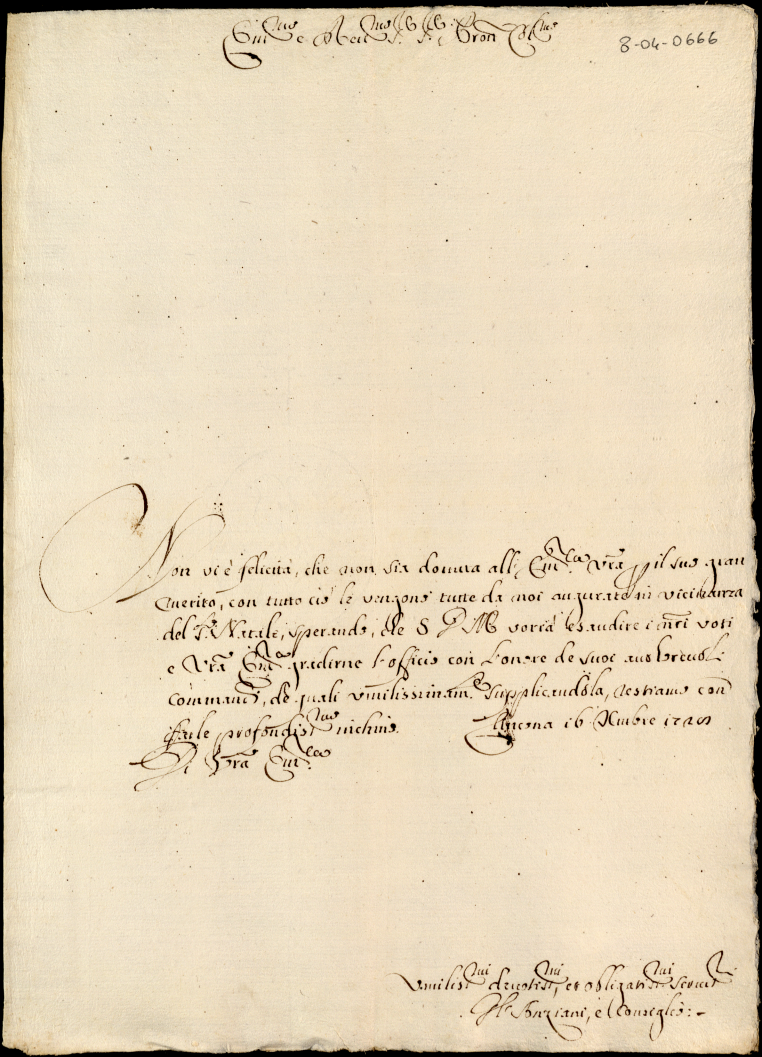 Em.mo e Reu.mo S.r S.r Pron Col.mo
8-04-0666
Non vi è felicità, che non sia douuta all' Em.za Vra p il suo gran
merito, con tutto ciò le vengono tutte da noi augurate in vicinanza
del S.to Natale, sperando, che S. D. M. vorrà esaudire i nri voti
e Vra Em.za gradirne l'officio con l'onore de suoi autoreuoli
commandi, de quali vmilissimam.te supplicandola, restiamo con
farle profondiss.mo inchino. Ancona 16 Xmbre
Di Vra Em.za
Vmiliss.mi deuotiss.mi, et obligatiss.mi Seruit.ri
Gl' Anziani, e Conseglio:-